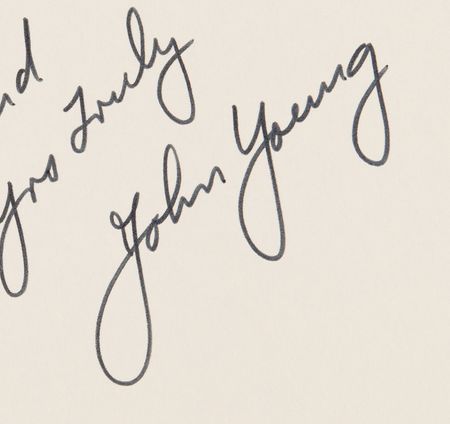 Yrs Truly
John Young